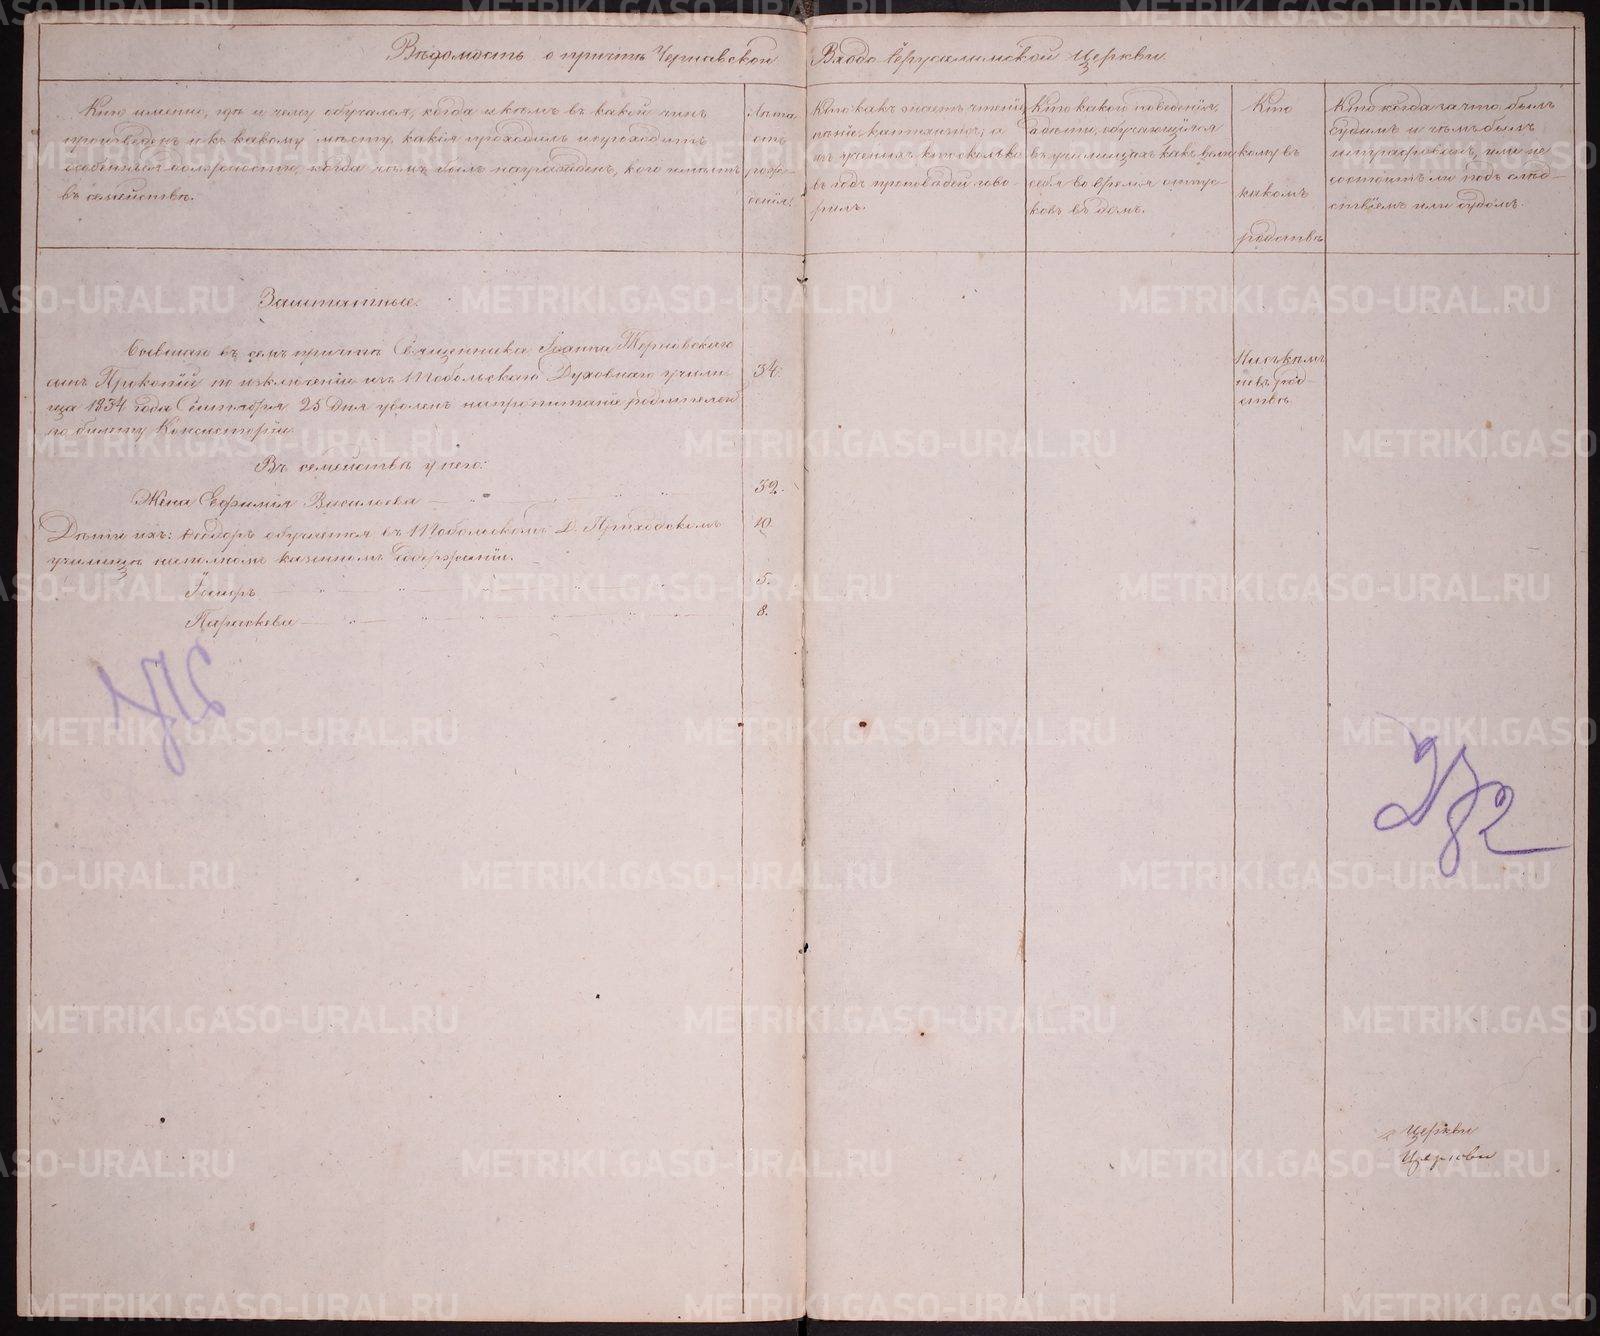 Вѣдомость о причтѣ Чернавской Входо-Іерусалимской Церкви.
Кто именно, гдѣ и чему обучался, когда и кѣмъ въ какой чинъ
произведенъ и къ какому мѣсту, какія проходилъ и проходитъ
особенныя должности, когда чѣмъ былъ награжденъ, кого имѣетъ
въ семействѣ.
Лѣта
отъ
рожде-
нія.
Кто какъ знаетъ чтеніе,
пѣніе, катихизисъ; а
изъ ученыхъ кто сколько
въ годъ проповѣдей гово-
рилъ.
Кто какого поведенія,
а дѣти, обучающіяся
въ училищахъ, какъ вели
себя во время отпус-
ковъ въ домъ.
Кто
кому въ
какомъ
родствѣ
Кто когда за что былъ
судимъ и чѣмъ былъ
штрафованъ, или не
состоитъ ли подъ слѣд-
ствіемъ или судомъ.
Заштатные.
Бывшаго въ семъ причтѣ Священника Іоанна Терновскаго
сынъ Прокопій по изключеніи изъ Тобольскаго Духовнаго учили-
ща 1834 года Сентября 25 Дня уволенъ на пропитаніе родителей
по билету Консисторіи.
34.
Ни съ кѣмъ
не въ род-
ствѣ.
Въ семействѣ у него:
Жена Евфимія Васильева 32.
Дѣти ихъ: Ѳеодоръ обучается въ Тобольскомъ Д. Приходскомъ 10.
училищѣ на полномъ казенномъ содержаніи.
5.
Параскева 8.
282
Церкви
Церкови
METRIKI.GASO-URAL.RU